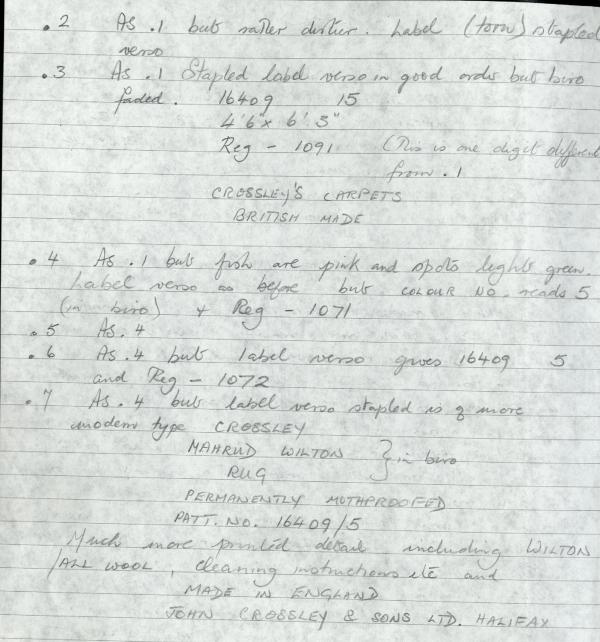 .2 As .1 but rather dirtier. Label (torn) stapled
verso
.3 As .1 Stapled label verso in good order but biro
faded. 16409 15
4'6" x 6'3"
Reg - 1091 (This is one digit different
from .1
CROSSLEY'S CARPETS
BRITISH MADE
.4 As .1 but fish are pink and spots light green.
Label verso as before but COLOUR NO. reads 5
(in biro) + Reg - 1071
.5 As .4
.6 As .4 but label verso gives 16409 5
and Reg - 1072
.7 As .4 but label verso stapled is of more
modern type CROSSLEY
MAHRUD WILTON } in biro
RUG
PERMANENTLY MOTHPROOFED
PATT. NO. 16409/5
Much more printed detail including WILTON
/ALL WOOL, cleaning instructions etc and
MADE IN ENGLAND
JOHN CROSSLEY & SONS LTD. HALIFAX